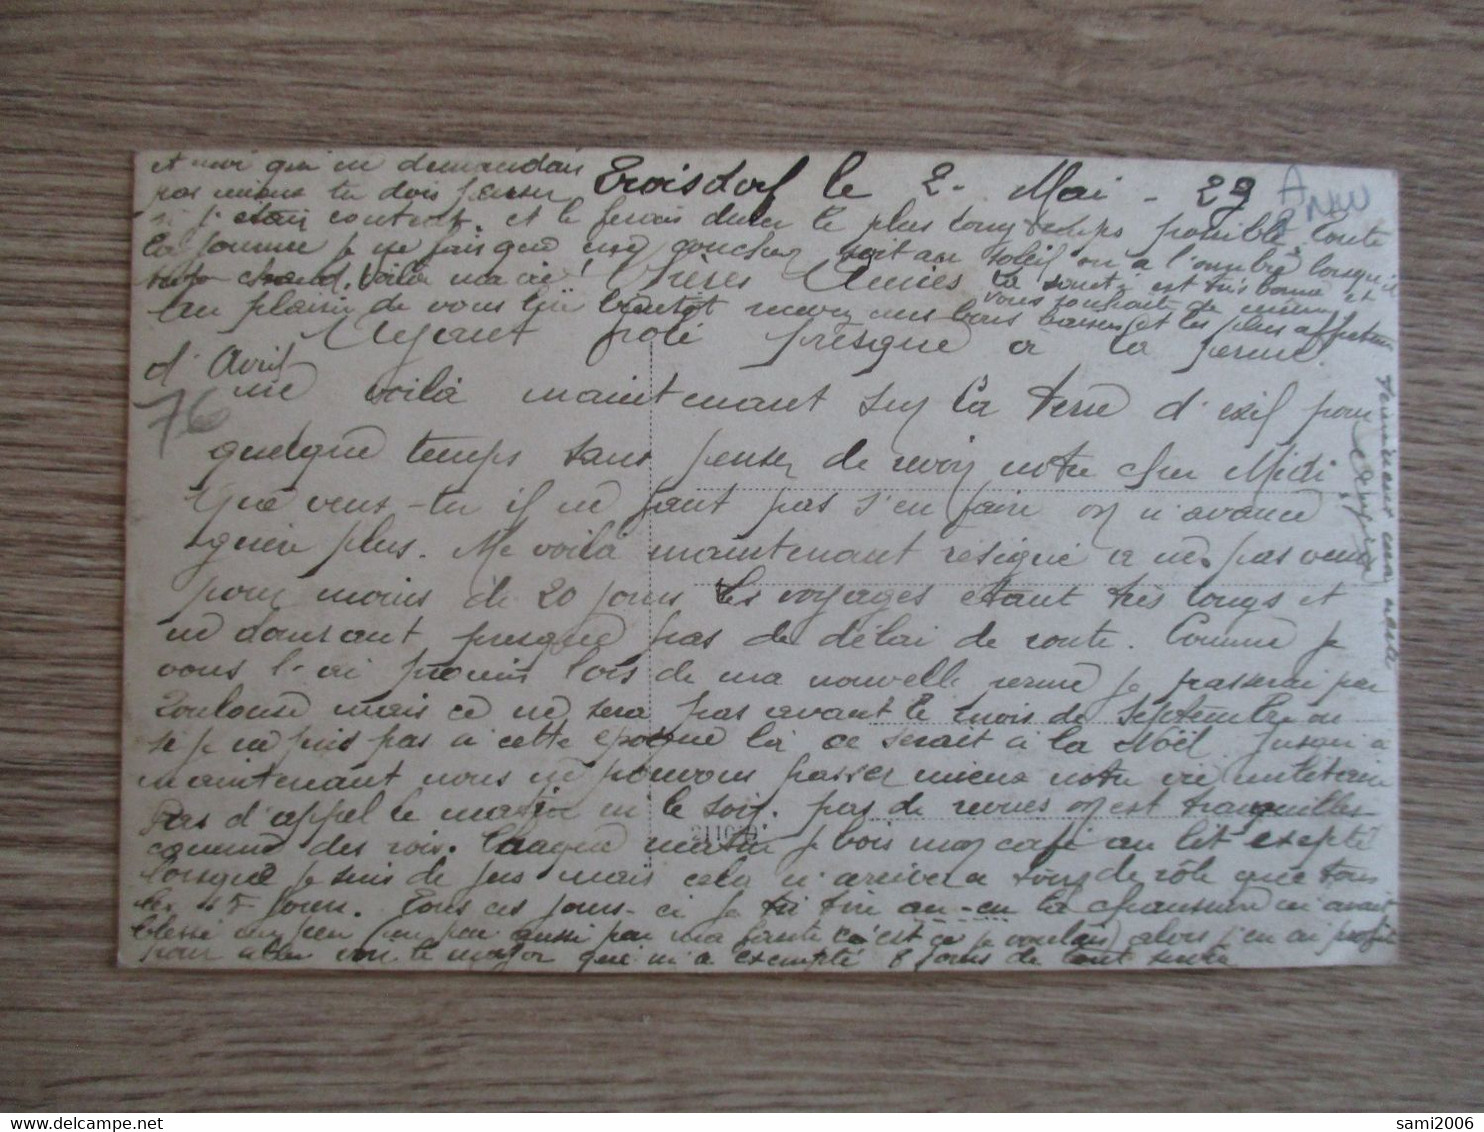 Troisdorf le 2. Mai - 29
A NW
Chères Amies
Ayant filé presque à la ferme
d'Avril
76
me voilà maintenant sur la terre d'exil pour
quelque temps sans penser de revoir notre cher Midi
Que veux-tu il ne faut pas s'en faire on n'avance
guère plus. Me voilà maintenant résigné à ne pas venir
pour moins de 20 jours les voyages étant très longs et
ne donnant presque pas de délai de route. Comme je
vous l'ai promis lors de ma nouvelle perme je passerai par
Toulouse mais ce ne sera pas avant le mois de Septembre ou
si je ne puis pas à cette époque là ce serait à la Noël. Jusqu'à
maintenant nous ne pouvons passer mieux notre vie militaire
Pas d'appel le matin ni le soir. pas de revues on est tranquilles
comme des rois. Chaque matin je bois mon café au lit excepté
lorsque je suis de jus mais cela n'arrive à tour de rôle que tous
les 15 jours. Tous ces jours-ci je
la chaussure m'avait
blessé un peu (un peu aussi par ma faute c'est ce que je voulais) alors j'en ai profité
pour aller voir le major qui m'a exempté 8 jours de tout service
et moi qui ne demandais
pas mieux tu dois penser
si j'étais content et le ferais durer le plus longtemps possible. Toute
la journée je ne fais que me coucher soit au soleil ou à l'ombre lorsqu'il
fait trop chaud. Voilà ma vie! La santé est très bonne et
vous souhaite de même
Au plaisir de vous lire bientôt recevez mes bons baisers et les plus affectueux
211070